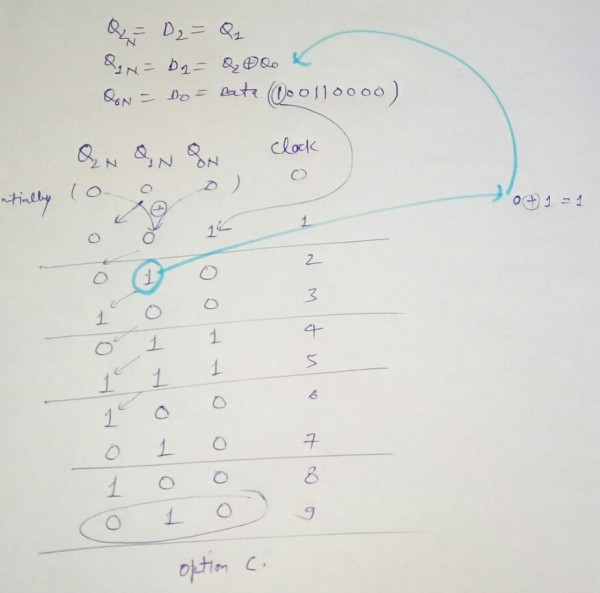 Q₂N = D₂ = Q₁
Q₁N = D₁ = Q₂⊕Q₀
Q₀N = D₀ = Data (100110000)
Q₂N Q₁N Q₀N Clock
ntially (0 0 0) 0
⊕
0 0 1 1
0⊕1=1
0 1 0 2
1 0 0 3
0 1 1 4
1 1 1 5
1 0 0 6
0 1 0 7
1 0 0 8
0 1 0 9
option C.